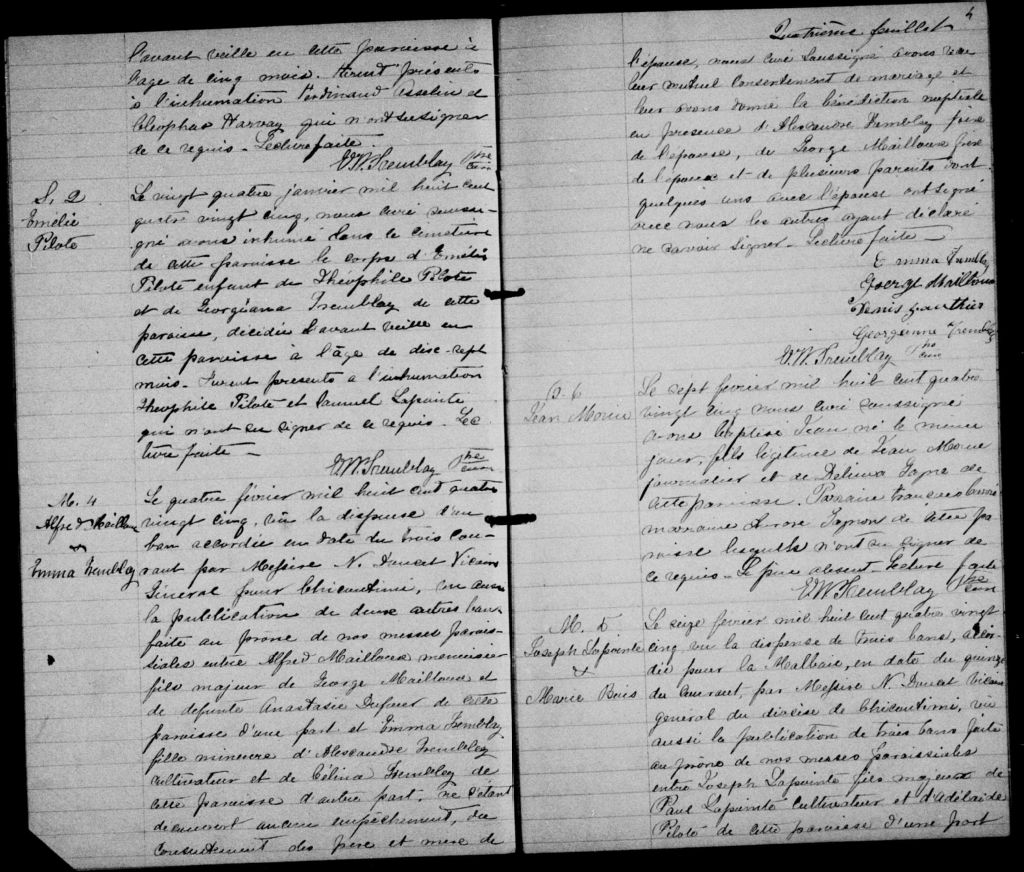 l'avant veille en cette paroisse à
l'age de cinq mois. Furent présents
à l'inhumation Ferdinand Asselin et
Cléophas Harvay qui n'ont su signer
de ce requis - Lecture faite
V. W. Tremblay Ptre Curé
S. 2
Emélie
Pilote
Le vingt quatre janvier mil huit cent
quatre vingt cinq, nous curé soussi-
gné avons inhumé dans le cimetière
de cette paroisse le corps d'Emélie
Pilote enfant de Théophile Pilote
et de Georgéana Tremblay de cette
paroisse, décédée l'avant veille en
cette paroisse à l'âge de disc-sept
mois. Furent présents à l'inhumation
Théophile Pilote et Samuel Lapointe
qui n'ont su signer de ce requis. Lec
ture faite -
V. W. Tremblay Ptre Curé
M. 4
Alfred Mailloux
&
Emma Tremblay
Le quatre février mil huit cent quatre
vingt cinq, vu la dispense d'un
ban accordée en date du trois cou-
rant par Messire N. Doucet Vicaire
Général pour Chicoutimi, vu aussi
la publication de deux autres bans
faite au prône de nos messes parois-
siales entre Alfred Mailloux menuisier
fils majeur de George Mailloux et
de défunte Anastasie Dufour de cette
paroisse d'une part et Emma Tremblay
fille mineure d'Alexandre Tremblay
cultivateur et de Célina Tremblay de
cette paroisse d'autre part, ne s'étant
découvert aucun empêchement, du
consentement des père et mère de
4
Quatrième feuillet
l'épouse, nous curé soussigné avons reçu
leur mutuel consentement de mariage et
leur avons donné la bénédiction nuptiale
en présence d'Alexandre Tremblay père
de l'épouse, de George Mailloux père
de l'époux et de plusieurs parents dont
quelques uns avec l'épouse ont signé
avec nous les autres ayant déclaré
ne savoir signer - Lecture faite -
Emma Tremblay
George Mailloux
Denis Gauthier
Georgianna Tremblay
V. W. Tremblay Ptre Curé
B. 6
Jean Morin
Le sept février mil huit cent quatre
vingt cinq nous curé soussigné
avons baptisé Jean né le même
jour, fils légitime de Jean Morin
journalier et de Delima
cette paroisse. Parrain François
marraine de cette pa
roisse lesquels n'ont su signer de
ce requis - Le père absent - Lecture faite
V. W. Tremblay Ptre Curé
M. 5
Joseph Lapointe
&
Marie Bois
Le seize février mil huit cent quatre vingt
cinq vu la dispense de trois bans, accor-
dée pour la Malbaie, en date du quinze
du courant, par Messire N. Doucet Vicaire
général du diocèse de Chicoutimi, vu
aussi la publication de trois bans faite
au prône de nos messes paroissiales
entre Joseph Lapointe fils majeur de
Paul Lapointe cultivateur et d'Adélaïde
Pilote de cette paroisse d'une part